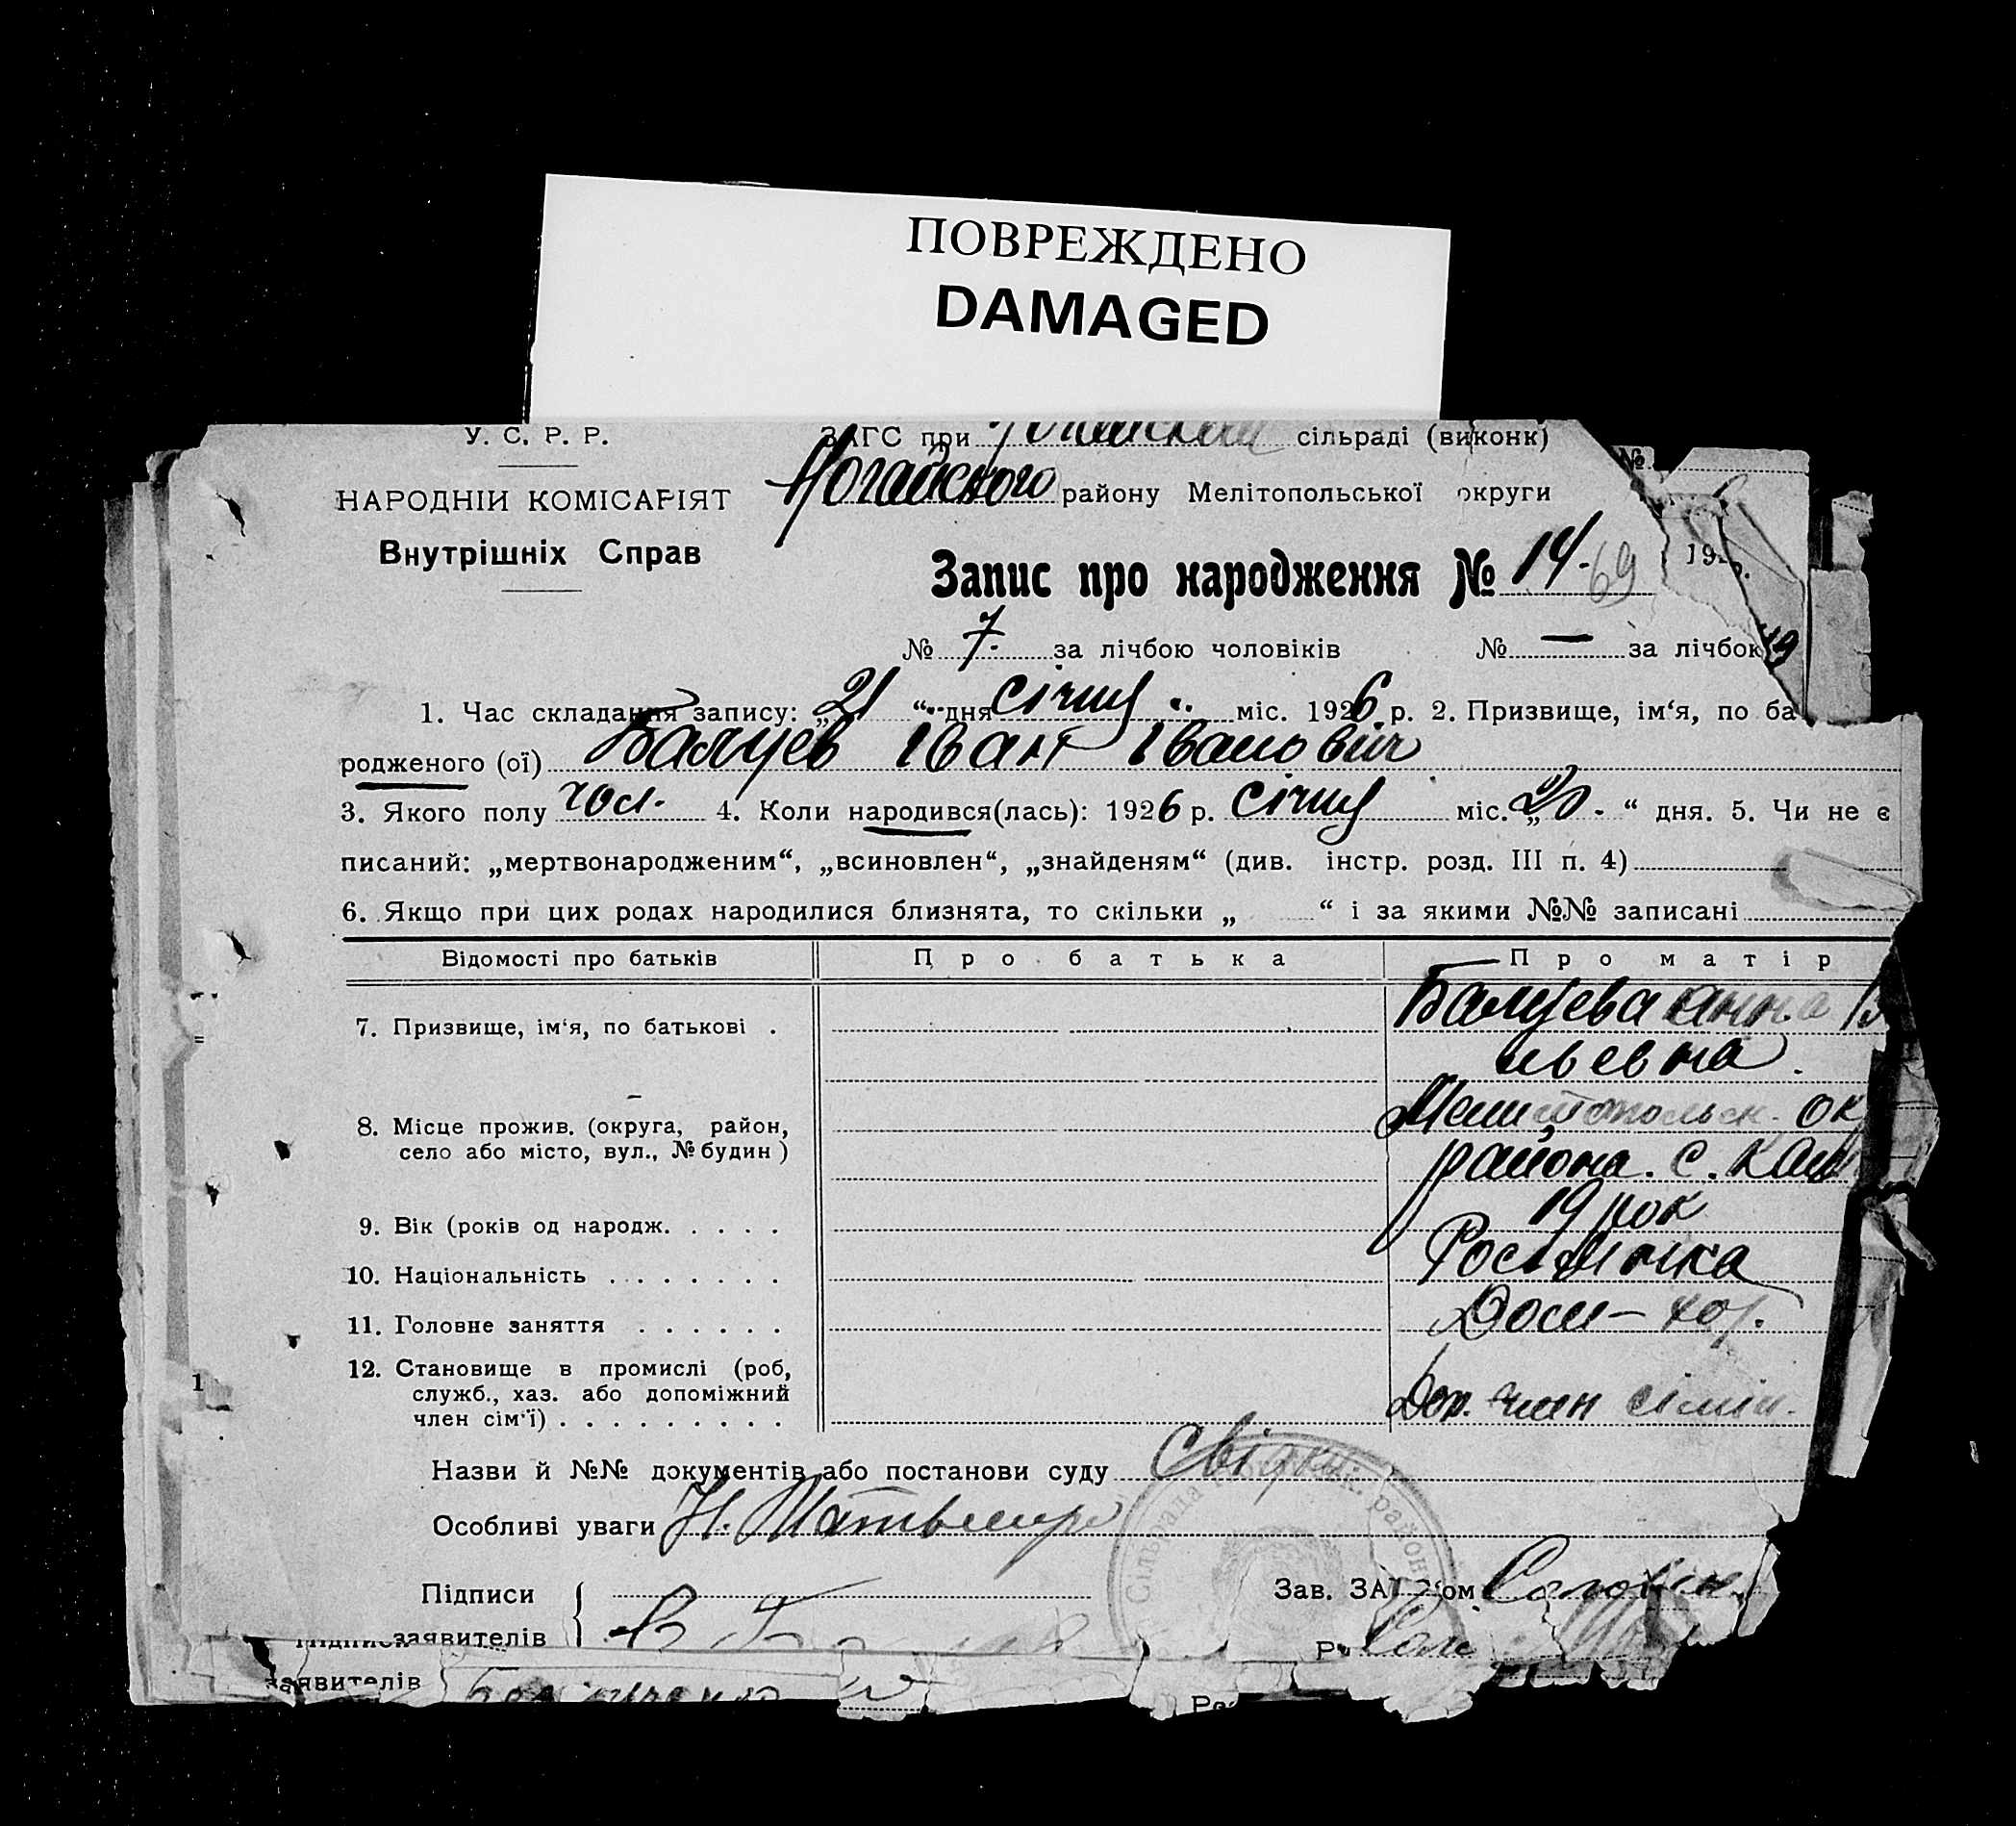 ПОВРЕЖДЕНО
DAMAGED
У. С. Р. Р.
ЗАГС при сільраді (виконк)
№
НАРОДНІЙ КОМІСАРІЯТ
Ногайского району Мелітопольської округи
Внутрішніх Справ
Запис про народження № 14. 69
192 р.
№ 7. за лічбою чоловіків № — за лічбою
1. Час складання запису: „21“ дня січня міс. 1926 р. 2. Призвище, ім‘я, по ба
родженого (ої) Балуев Іван Іванович
3. Якого полу чол. 4. Коли народився(лась): 1926 р. січня міс. „20.“ дня. 5. Чи не є
писаний: „мертвонародженим“, „всиновлен“, „знайденям“ (див. інстр. розд. III п. 4)
6. Якщо при цих родах народилися близнята, то скільки „ “ і за якими №№ записані
Відомості про батьків Про батька Про матір
7. Призвище, ім‘я, по батькові . Балуева Анна
ьевна.
8. Місце прожив. (округа, район, Мелитопольск. ок
село або місто, вул., № будин ) района. с.
9. Вік (років од народж. . . . . 19 рок
10. Національність . . . . . . .
11. Головне заняття . . . . . . Дом-
12. Становище в промислі (роб,
служб., хаз. або допоміжний Доп. член сімїи.
член сім‘ї) . . . . . . . . .
Назви й №№ документів або постанови суду Свідки
Особливі уваги Н.
Сільрада район
Підписи
Зав. ЗАГС‘ом
заявителів
заявителів